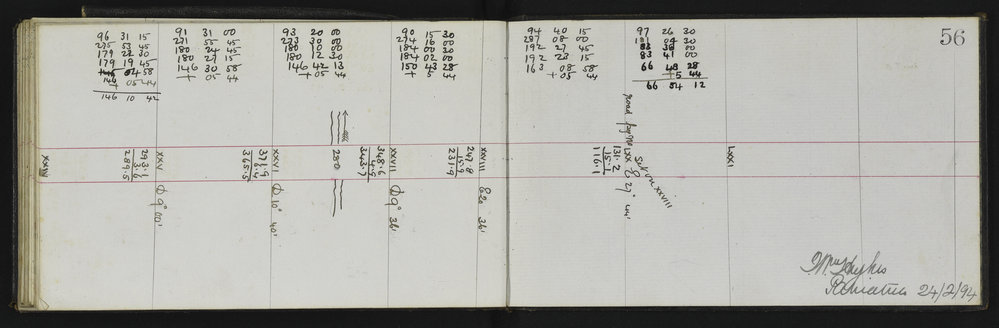 56
96 31 15
275 53 45
179 22 30
179 19 45
146 04 58
+ 05 44
146 10 42
91 31 00
271 55 45
180 24 45
180 27 15
146 30 58
+ 05 44
93 20 00
273 30 00
180 10 00
180 12 30
146 42 13
+ 05 44
90 15 30
274 16 00
184 00 30
184 02 00
150 43 28
+ 5 44
94 40 15
287 08 00
192 27 45
192 23 15
163 08 58
+ 05 44
97 26 30
83 41 00
66 48 28
+5 44
66 54 12
XXIV
XXV
293.1
3.6
289.5
9° 00'
XXVI
371.9
365.5
10° 40'
230
XXVII
348.6
4.9
343.7
9° 36'
XXVIII
247.8
15.9
231.9
20 36'
131.2
15.1
116.1
LXX
27° 44'
Set on XXVIII
LXXI
24/2/94